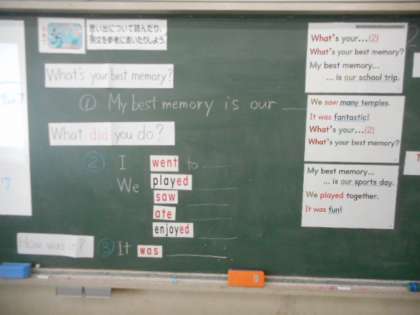 思い出について読んだり、
例文を参考に書いたりしよう。
What's your best memory?
① My best memory is our
What did you do?
② I went to
We played
saw
ate
enjoyed
How was it?
③ It was
What's your...(2)
What's your best memory?
My best memory...
... is our school trip.
We saw many temples.
It was fantastic!
What's your...(2)
What's your best memory?
My best memory...
... is our sports day.
We played together.
It was fun!